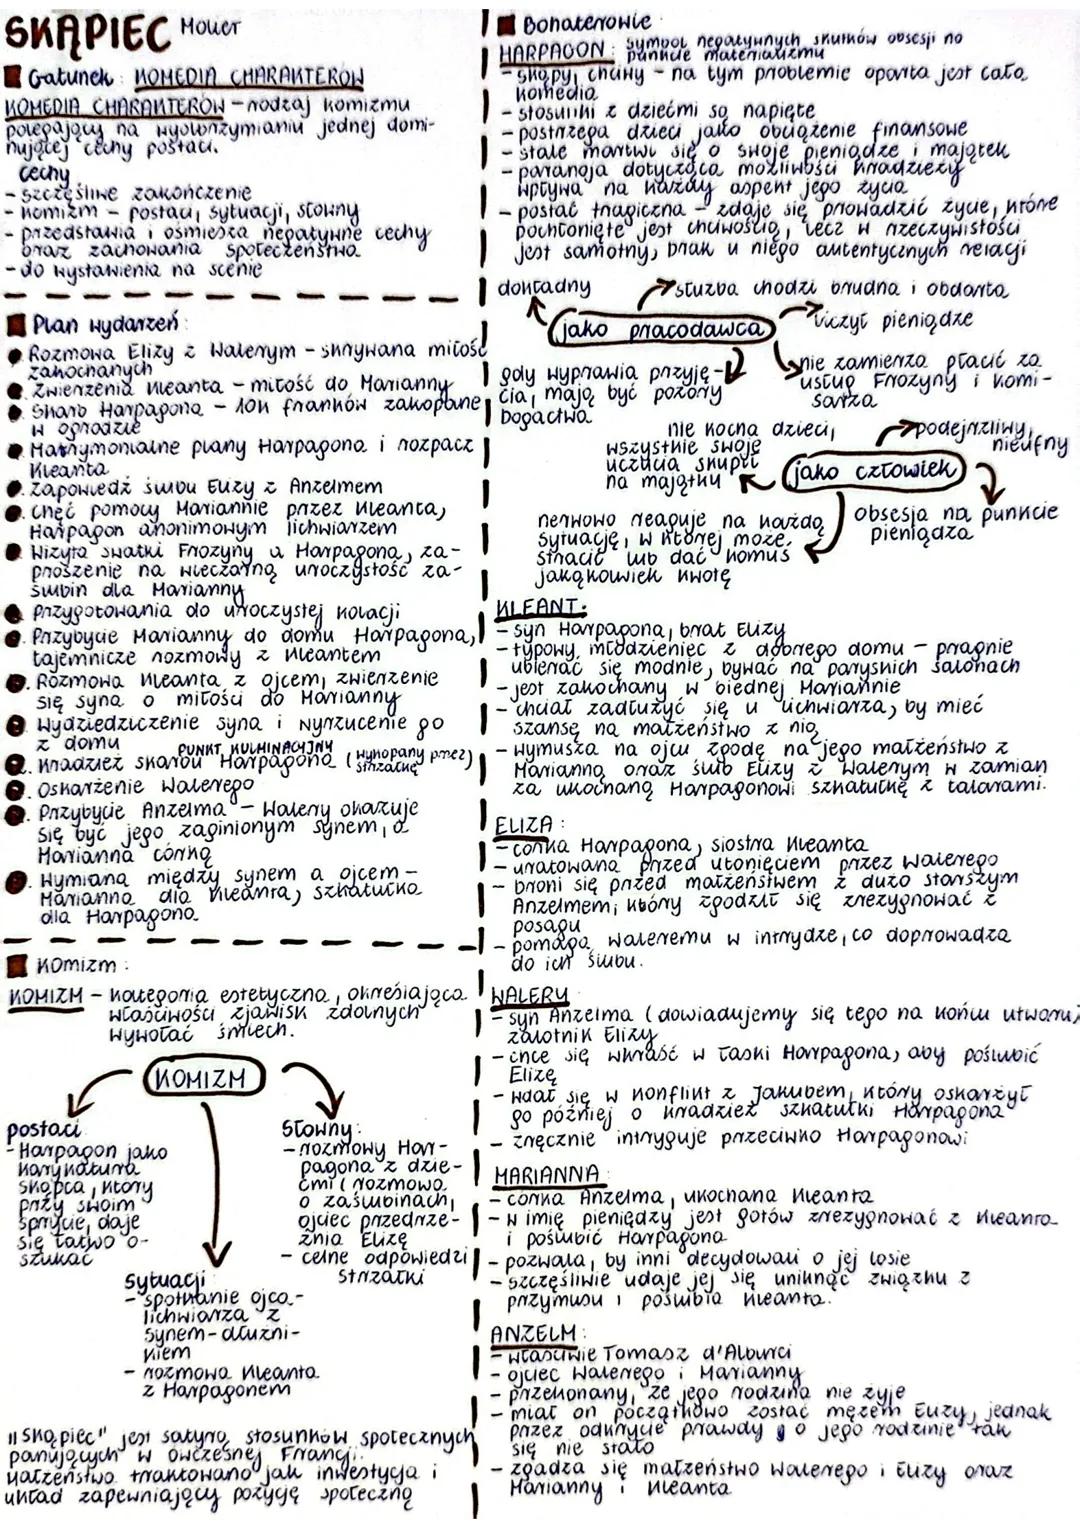 SKĄPIEC Molier
Gatunek: KOMEDIA CHARAKTERÓW
KOMEDIA CHARAKTERÓW - rodzaj komizmu
polegający na wyolbrzymianiu jednej domi-
nującej cechy postaci.
cechy
- szczęśliwe zakończenie
- komizm - postaci, sytuacji, słowny
- przedstawia i ośmiesza negatywne cechy
oraz zachowania społeczeństwa
- do wystawienia na scenie
Plan wydarzeń:
Rozmowa Elizy z Walerym - skrywana miłość
zakochanych
Zwierzenia Kleanta - miłość do Marianny
Skarb Harpagona - 10k franków zakopane
w ogrodzie
Matrymonialne plany Harpagona i rozpacz
Kleanta
Zapowiedź ślubu Elizy z Anzelmem
Chęć pomocy Mariannie przez Kleanta,
Harpagon anonimowym lichwiarzem
Wizyta swatki Frozyny u Harpagona, za-
proszenie na wieczorną uroczystość za-
ślubin dla Marianny
Przygotowania do uroczystej kolacji
Przybycie Marianny do domu Harpagona,
tajemnicze rozmowy z Kleantem
Rozmowa Kleanta z ojcem, zwierzenie
się syna o miłości do Marianny
Wydziedziczenie syna i wyrzucenie go
z domu
PUNKT KULMINACYJNY
Kradzież skarbu Harpagona (wykopany przez
strzałkę)
Oskarżenie Walerego
Przybycie Anzelma - Walery okazuje
się być jego zaginionym synem, a
Marianna córką
Wymiana między synem a ojcem -
Marianna dla Kleanta, szkatułka
dla Harpagona
Komizm:
KOMIZM - kategoria estetyczna, określająca
właściwości zjawisk zdolnych
wywołać śmiech.
KOMIZM
postaci
- Harpagon jako
karykatura
skąpca, który
przy swoim
sprycie, daje
się łatwo o-
szukać
Słowny:
- rozmowy Har-
pagona z dzie-
ćmi (rozmowa
o zaślubinach,
ojciec przedrze-
źnia Elizę
- celne odpowiedzi
strzałki
Sytuacji
- spotkanie ojca-
lichwiarza z
synem-dłużni-
kiem
- rozmowa Kleanta
z Harpagonem
"Skąpiec" jest satyrą stosunków społecznych
panujących w ówczesnej Francji.
Małżeństwo traktowano jak inwestycja i
układ zapewniający pozycję społeczną
Bohaterowie
HARPAGON: symbol negatywnych skutków obsesji na
punkcie materializmu
- skąpy, chciwy - na tym problemie oparta jest cała
komedia
- stosunki z dziećmi są napięte
- postrzega dzieci jako obciążenie finansowe
- stale martwi się o swoje pieniądze i majątek
- paranoja dotycząca możliwości kradzieży
wpływa na każdy aspekt jego życia
- postać tragiczna - zdaje się prowadzić życie, które
pochłonięte jest chciwością, lecz w rzeczywistości
jest samotny, brak u niego autentycznych relacji
dokładny
służba chodzi brudna i obdarta
jako pracodawca
liczył pieniądze
gdy wyprawia przyję-
cia, mają być pozory
bogactwa
nie zamierza płacić za
usług Frozyny i komi-
sarza
nie kocha dzieci,
wszystkie swoje
uczucia skupił
na majątku
podejrzliwy,
nieufny
jako człowiek
nerwowo reaguje na każdą
sytuację, w której może
stracić lub dać komuś
jakąkolwiek kwotę
obsesja na punkcie
pieniądza
KLEANT:
- syn Harpagona, brat Elizy
- typowy młodzieniec z dobrego domu - pragnie
ubierać się modnie, bywać na paryskich salonach
- jest zakochany w biednej Mariannie
- chciał zadłużyć się u lichwiarza, by mieć
szansę na małżeństwo z nią
- wymusza na ojcu zgodę na jego małżeństwo z
Marianną oraz ślub Elizy z Walerym w zamian
za ukochaną Harpagonowi szkatułkę z talarami.
ELIZA:
- córka Harpagona, siostra Kleanta
- uratowana przed utonięciem przez Walerego
- broni się przed małżeństwem z dużo starszym
Anzelmem, który zgodził się zrezygnować z
posagu
- pomaga Waleremu w intrydze, co doprowadza
do ich ślubu.
WALERY
- syn Anzelma (dowiadujemy się tego na końcu utworu)
zalotnik Elizy
- chce się wkraść w łaski Harpagona, aby poślubić
Elizę
- wdał się w konflikt z Jakubem, który oskarżył
go później o kradzież szkatułki Harpagona
- zręcznie intryguje przeciwko Harpagonowi
MARIANNA
- córka Anzelma, ukochana Kleanta
- w imię pieniędzy jest gotów zrezygnować z Kleanta
i poślubić Harpagona
- pozwala, by inni decydowali o jej losie
- szczęśliwie udaje jej się uniknąć związku z
przymusu i poślubia Kleanta.
ANZELM:
- właściwie Tomasz d'Alburci
- ojciec Walerego i Marianny
- przekonany, że jego rodzina nie żyje
- miał on początkowo zostać mężem Elizy, jednak
przez odkrycie prawdy o jego rodzinie tak
się nie stało
- zgadza się małżeństwo Walerego i Elizy oraz
Marianny i Kleanta